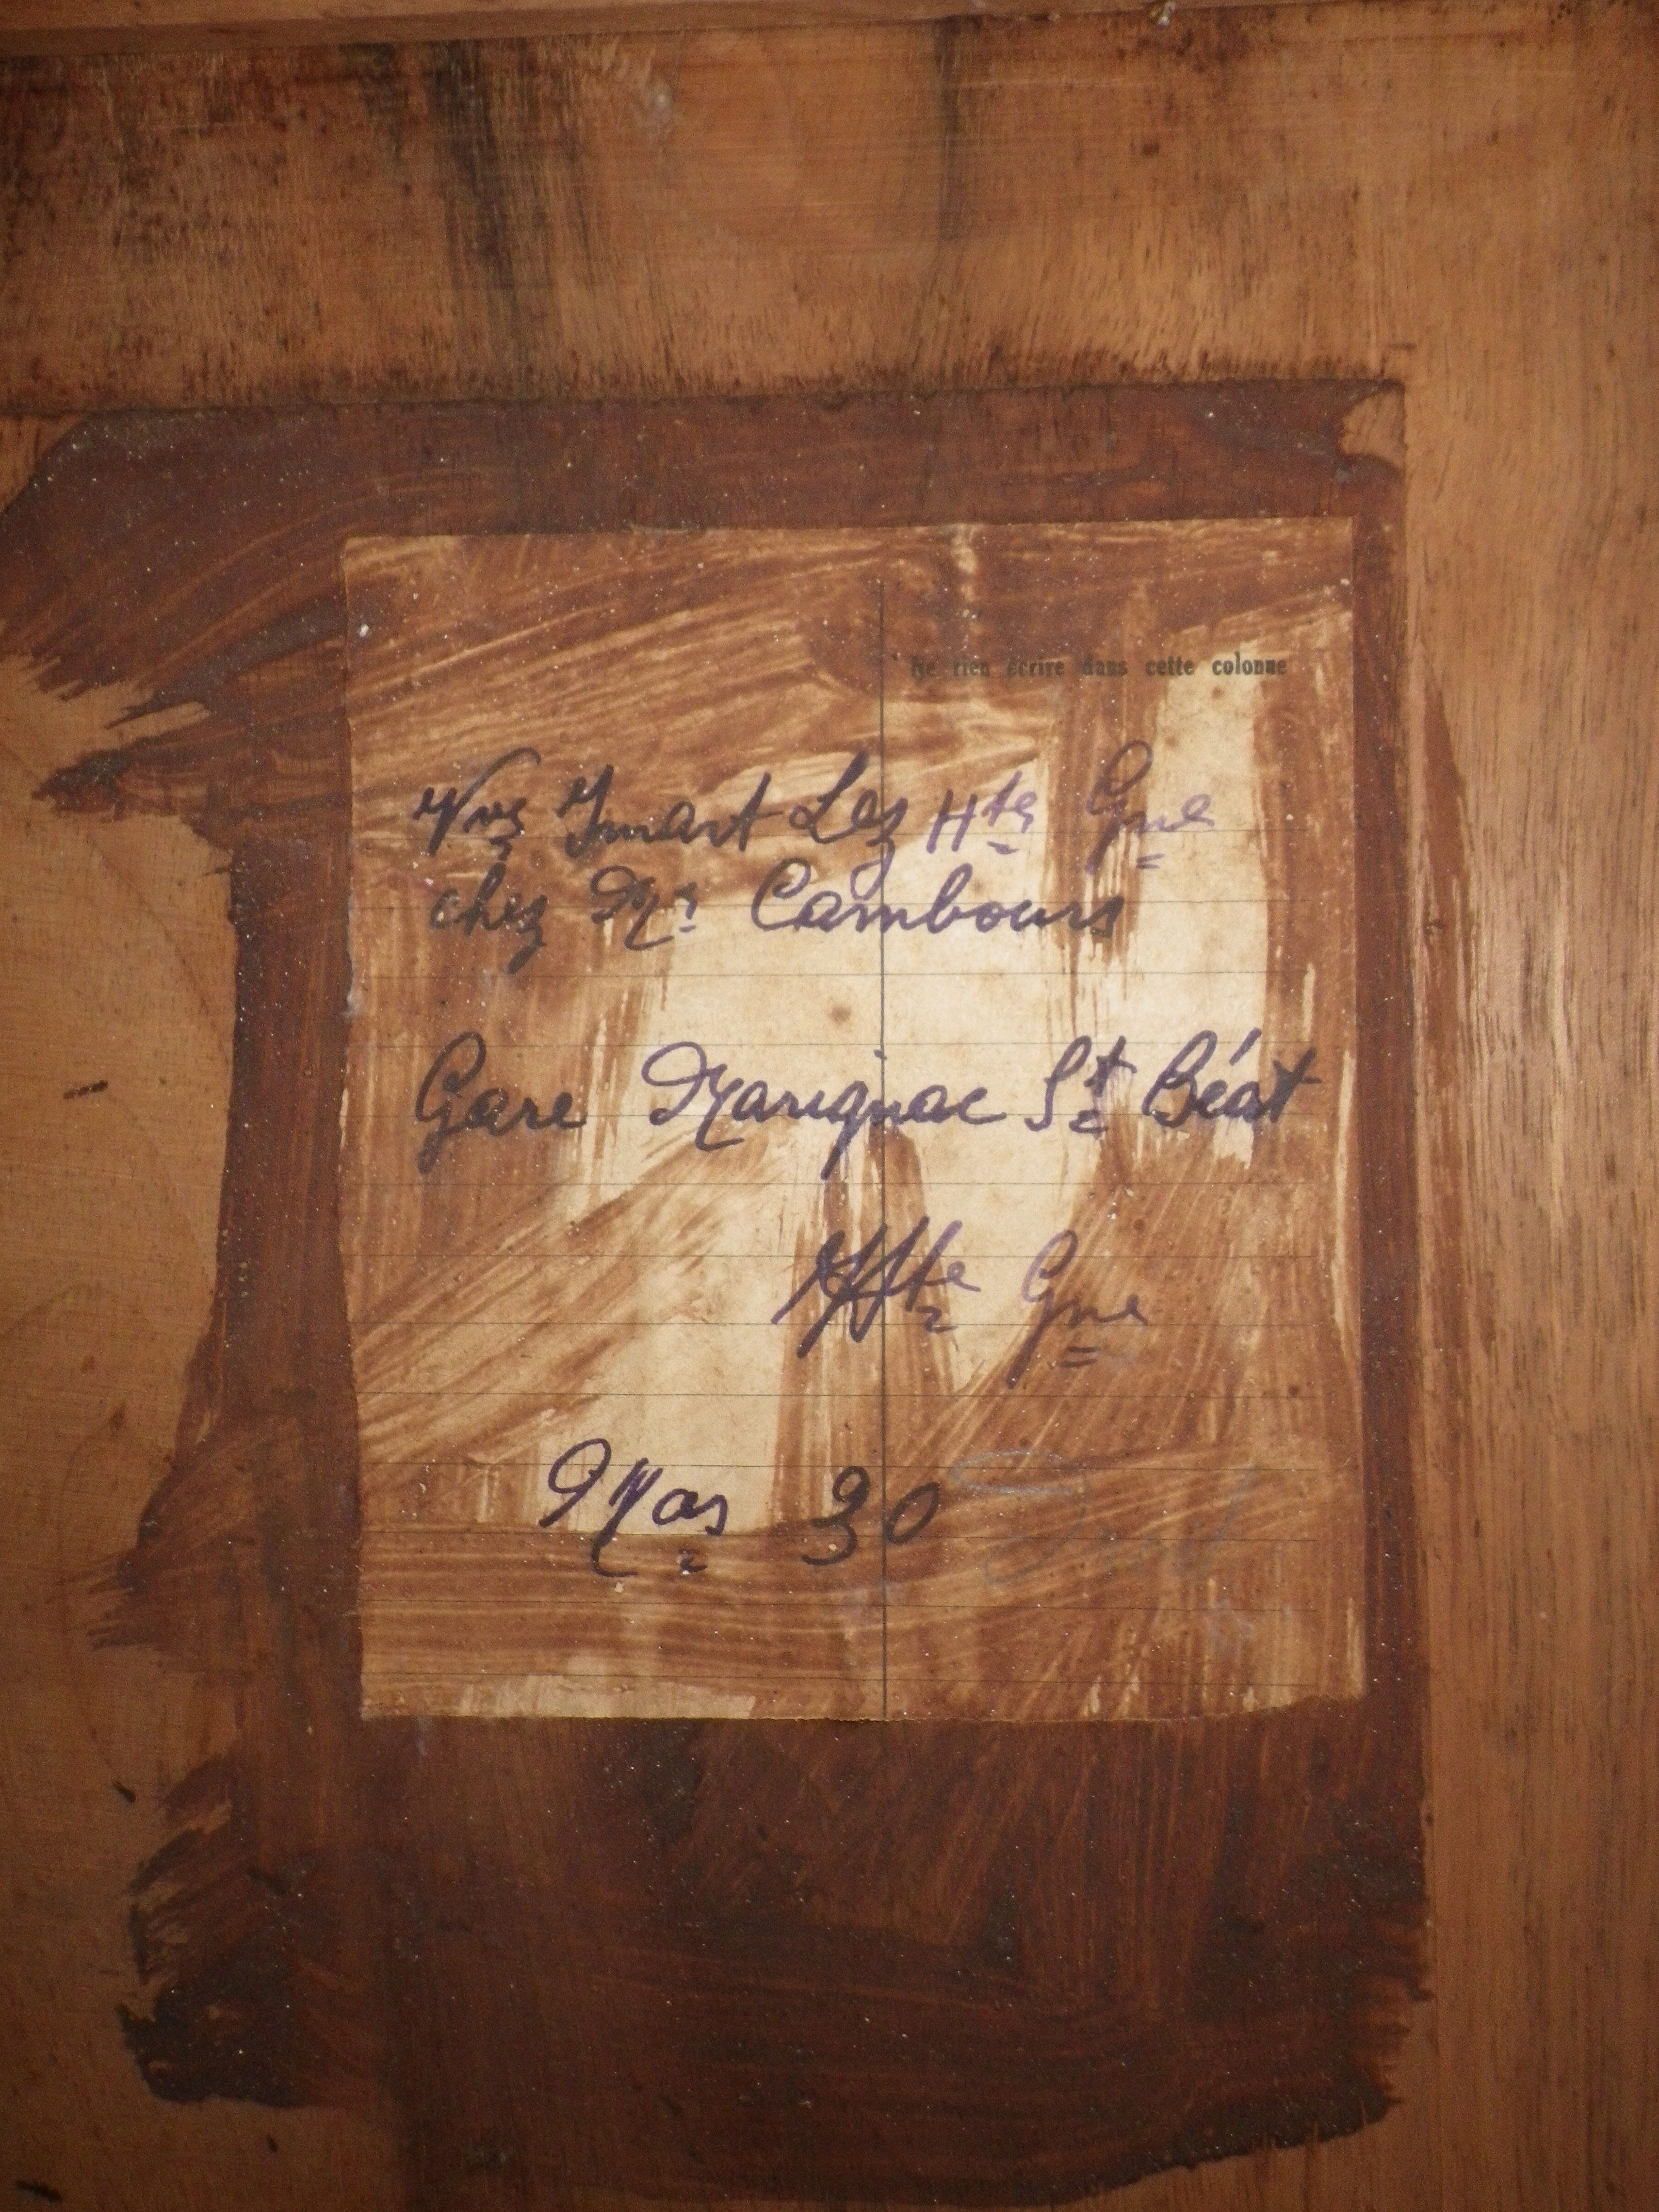 Ne rien écrire dans cette colonne
Vve Imart Lez Hte Gne
chez Mr Cambours
Gare Marignac St Béat
Hte Gne
Mas 30